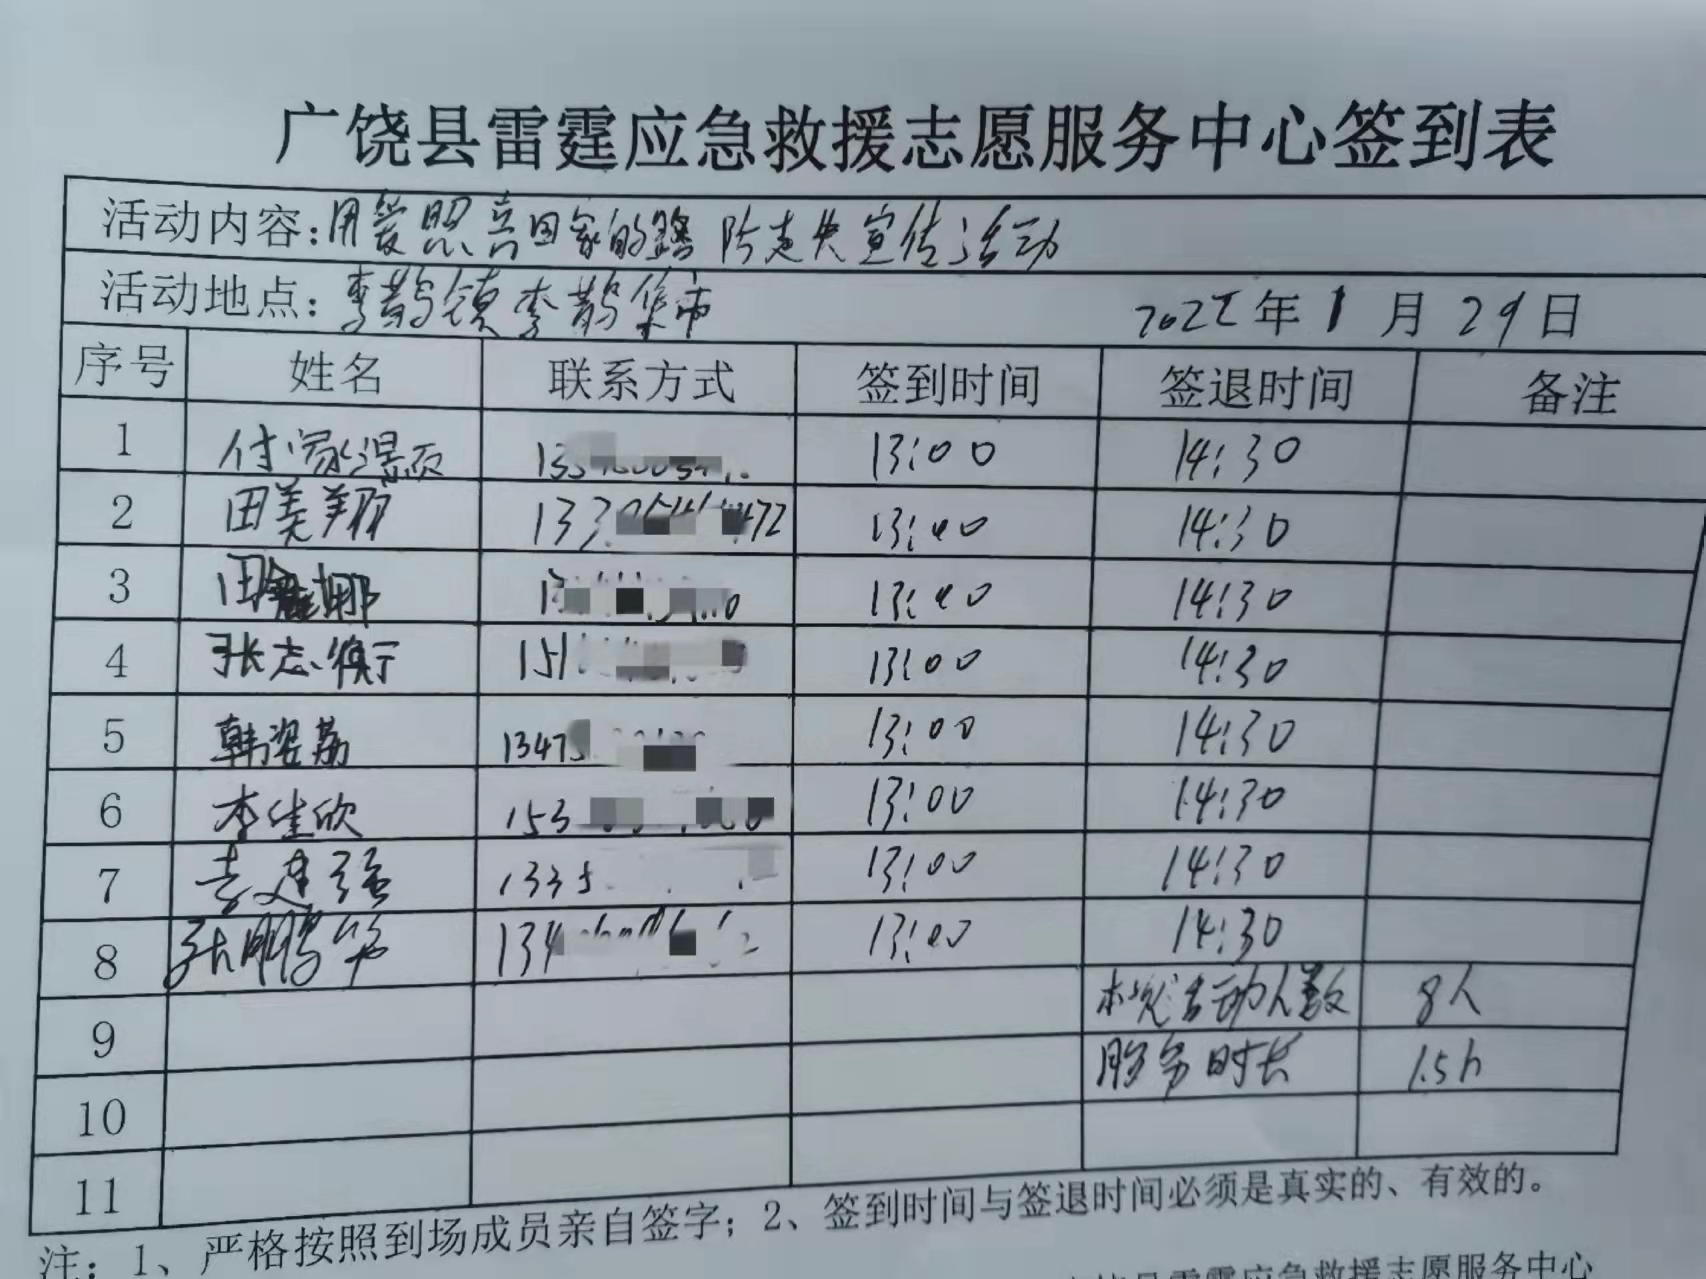 广饶县雷霆应急救援志愿服务中心签到表
活动内容:用爱照亮回家的路 防走失宣传活动
活动地点:李鹊镇李鹊集市 2022年1月29日
序号 姓名 联系方式 签到时间 签退时间 备注
1 付 13:00 14:30
2 田美翔 133 472 13:00 14:30
3 田 娜 13 13:00 14:30
4 张志 151 13:00 14:30
5 韩姿荔 1347 13:00 14:30
6 李佳欣 153 13:00 14:30
7 袁建强 133 13:00 14:30
8 张鹏华 134 13:00 14:30
9 本次活动人数 8人
10 服务时长 1.5h
11
注:1、严格按照到场成员亲自签字;2、签到时间与签退时间必须是真实的、有效的。
广饶县雷霆应急救援志愿服务中心